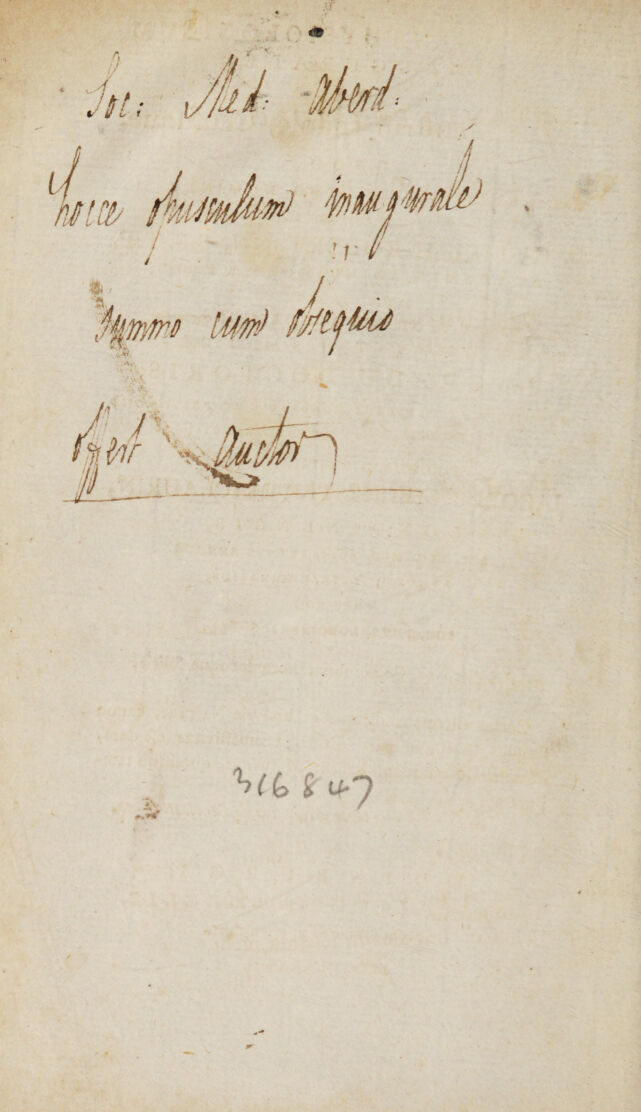 Soc: Med: Aberd:
hocce opusculum inaugurale
summo cum obsequio
offert Auctor
316847